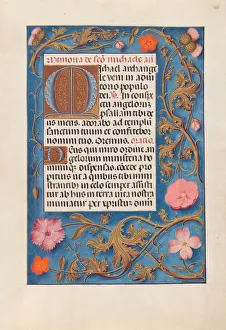 Memoria de sco michaele ar
Michael archange
le veni in adiu
torio populo
dei. In conspec
tu angelorum
psallam tibi de
us meus. adorabo ad templum
sanctum tuum et confitebor
nomini tuo. Oremus. oratio.
Deus qui miro ordine an
gelorum ministeria ho
minumque dispensas. conce de pro
pitius ut a quibus tibi mini
strantibus in celo semper assisti
tur ab his in terra vita nostra
muniatur. per xpristum dnm